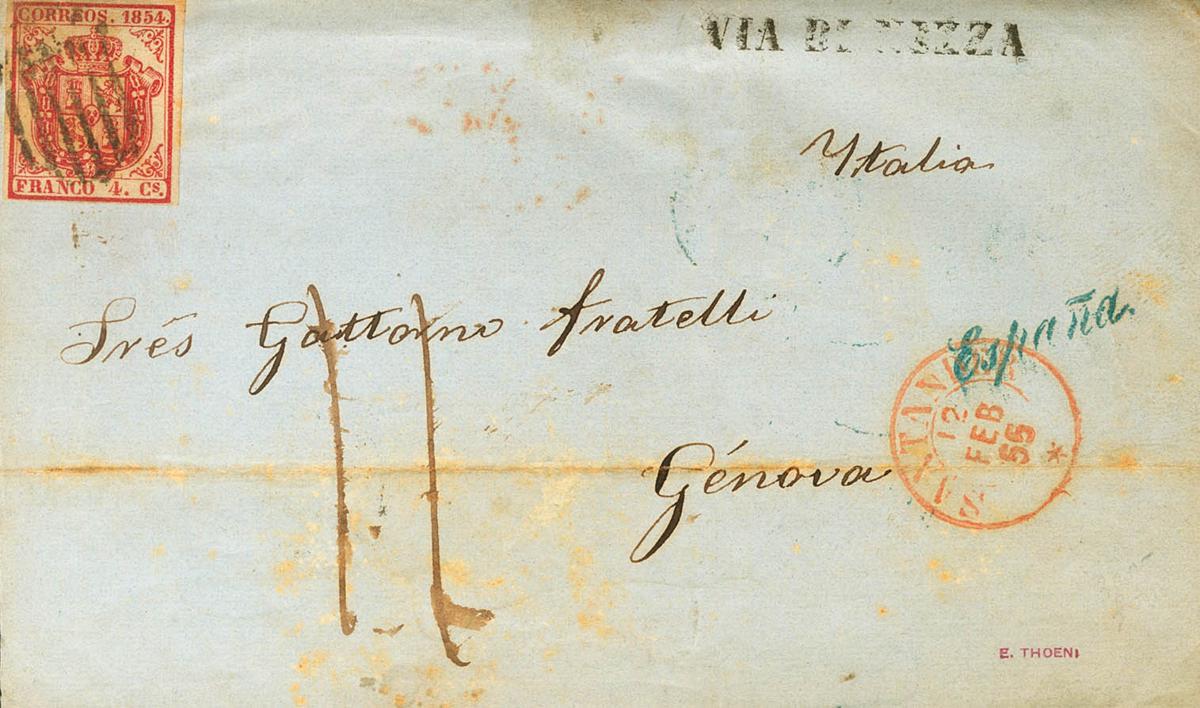 CORREOS. 1854.
FRANCO 4. Cs.
VIA DI NIZZA
Ytalia
Srés Gattorno fratelli
Génova
España.
SANTANDER
12
FEB
55
*
11
E. THOENI